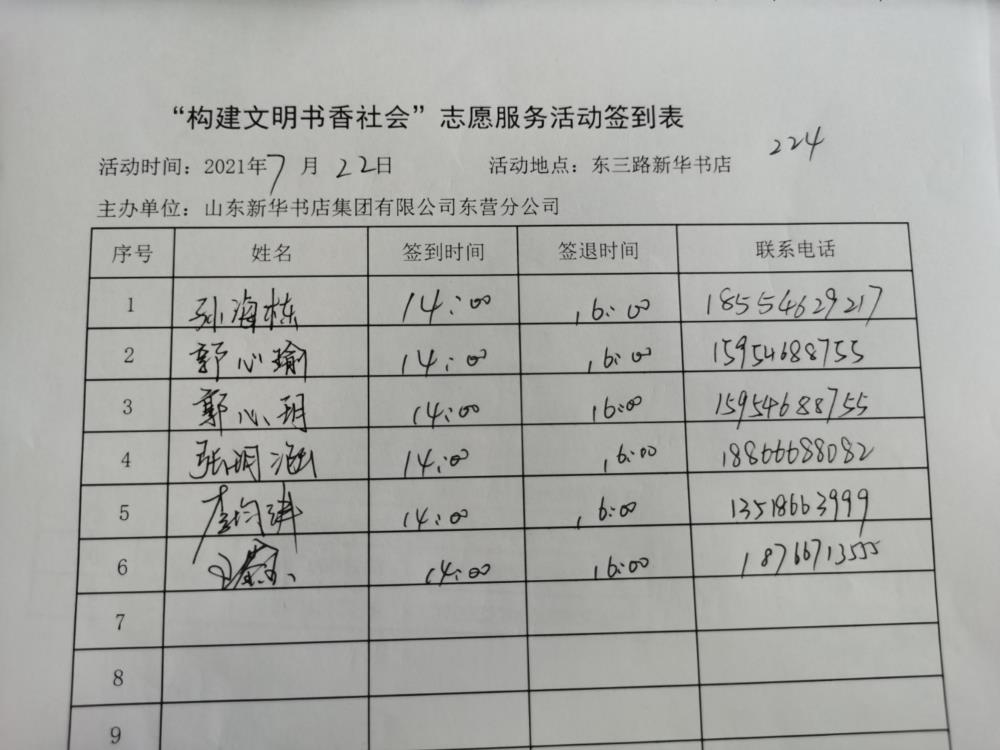 “构建文明书香社会”志愿服务活动签到表
224
活动时间：2021年7月22日 活动地点：东三路新华书店
主办单位：山东新华书店集团有限公司东营分公司
序号 姓名 签到时间 签退时间 联系电话
1 孙海栋 14:00 16:00 18554629217
2 郭心瑜 14:00 16:00 15954688755
3 郭心玥 14:00 16:00 15954688755
4 张玥涵 14:00 16:00 18866688082
5 李均 14:00 16:00 13518663999
6 14:00 16:00 18766713555
7
8
9